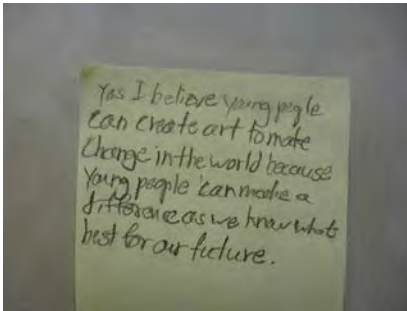 Yes I believe young people
can create art to make
change in the world because
young people can make a
difference as we know whats
best for our future.